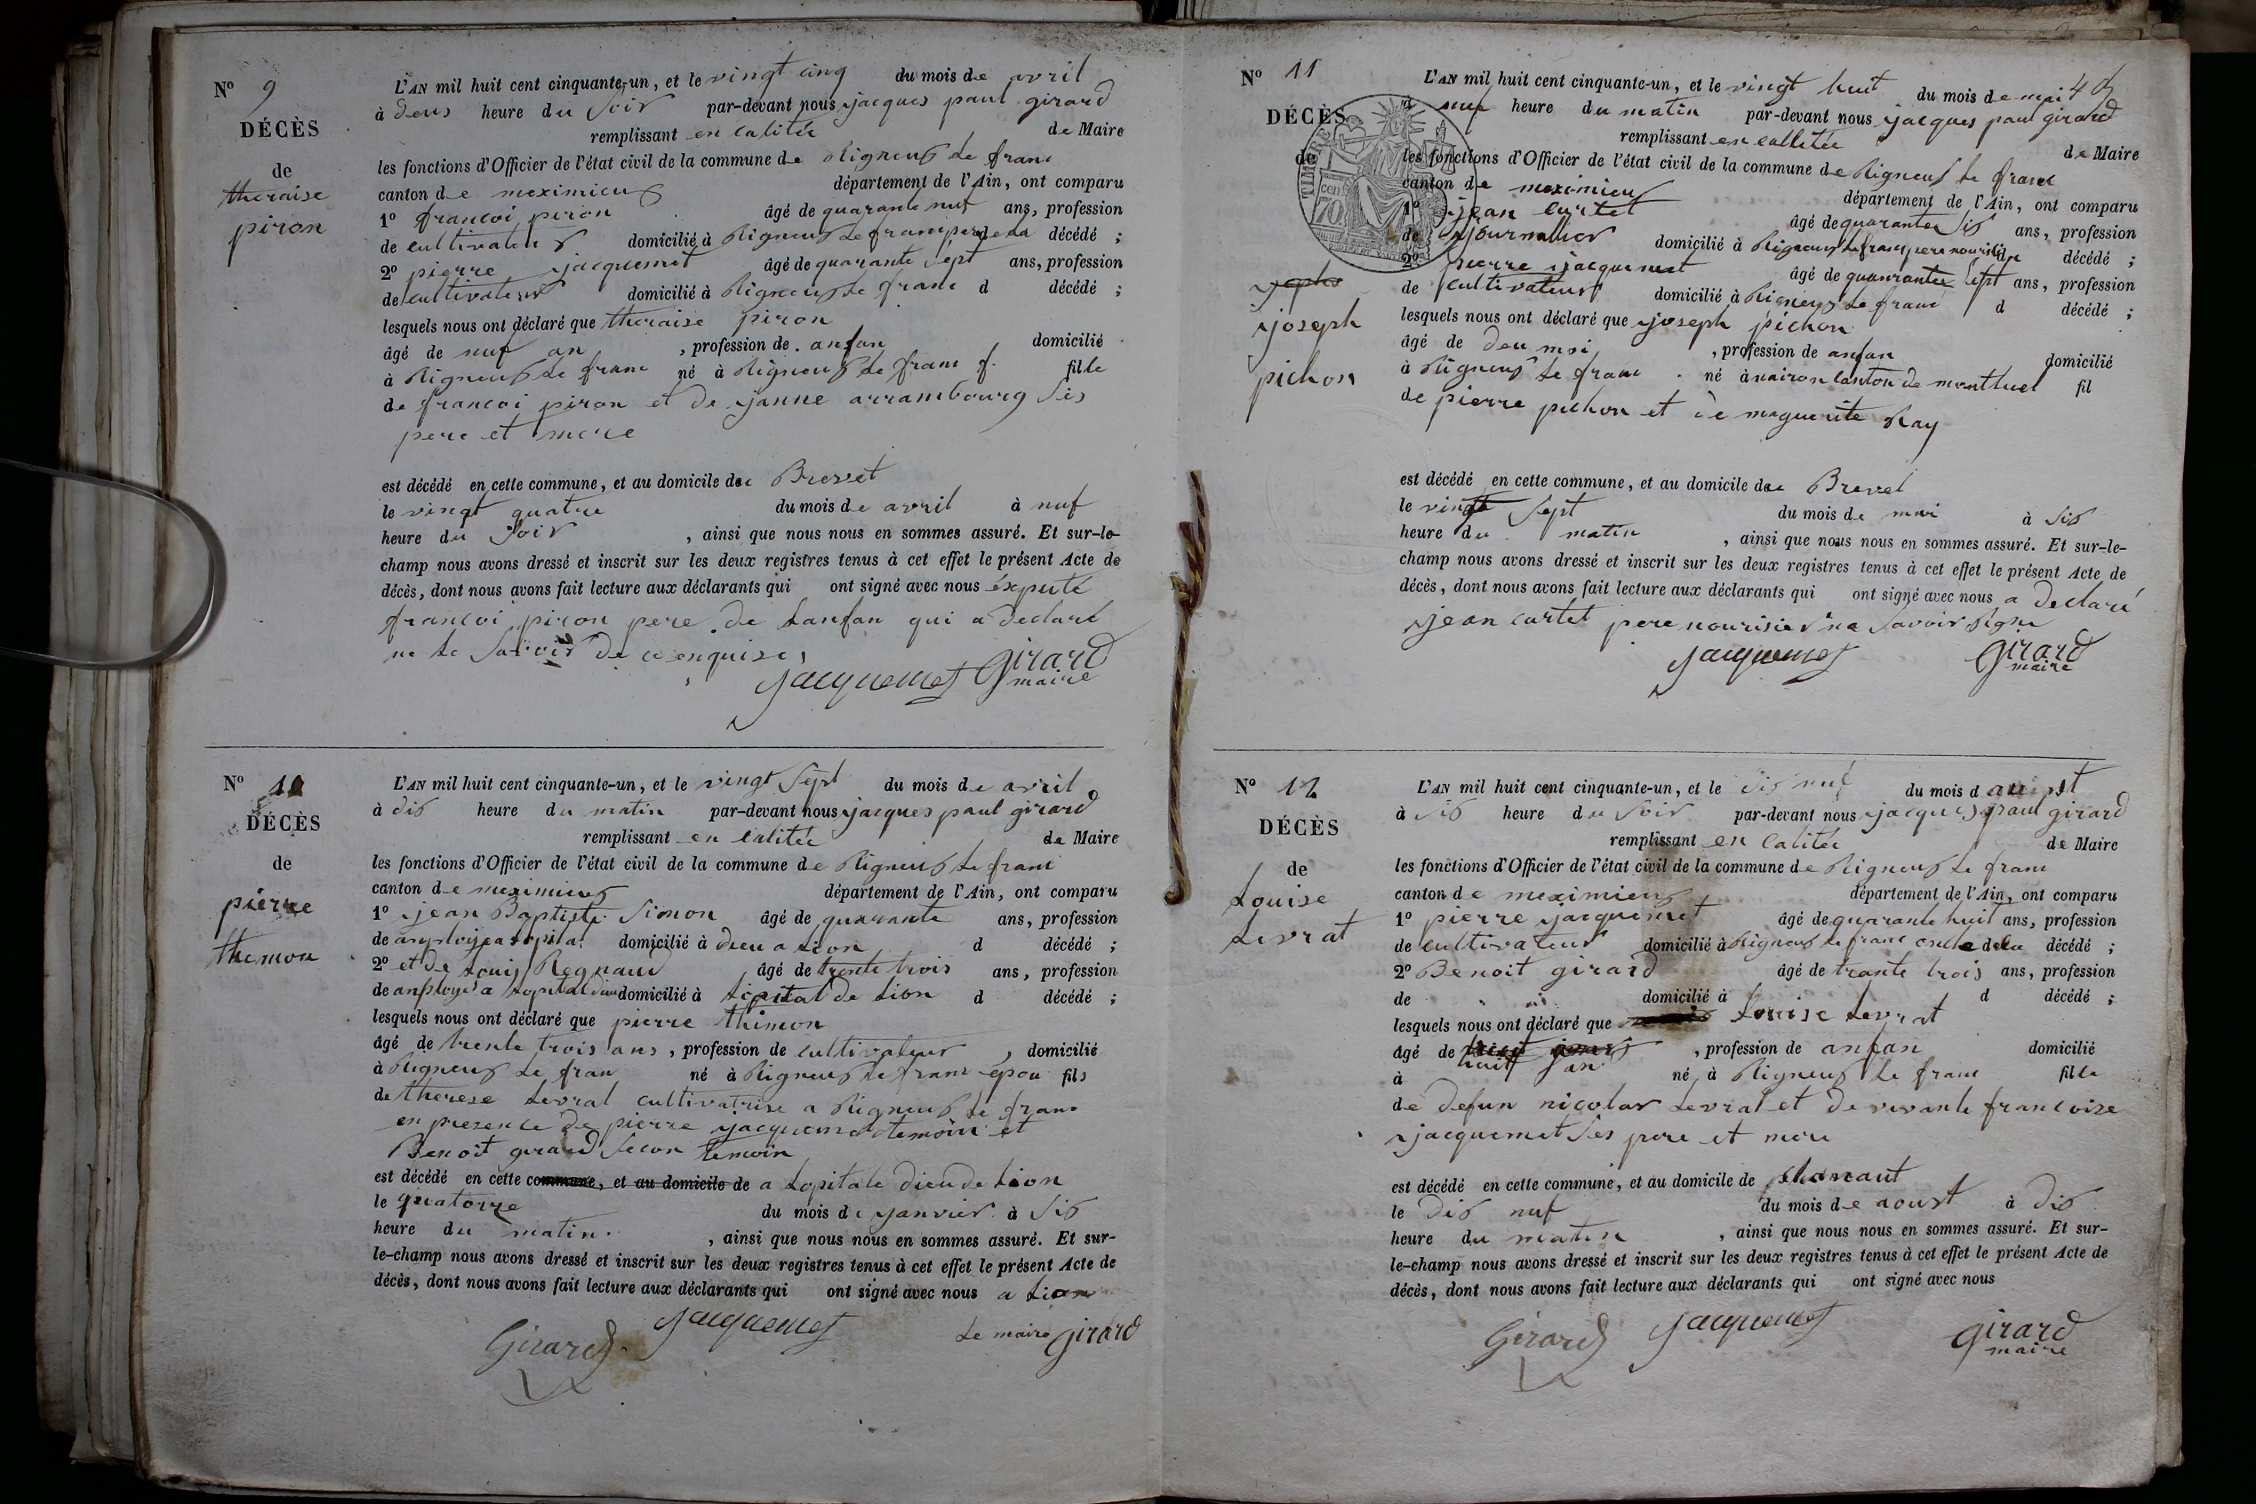 N° 9
DÉCÈS
de
theraise
piron
L'AN mil huit cent cinquante-un, et le vingt cinq du mois de avril
à deus heure du soir par-devant nous jacques paul girard
remplissant en calitée de Maire
les fonctions d'Officier de l'état civil de la commune de Rigneus le franc
canton de meximieus département de l'Ain, ont comparu
1° francoi piron âgé de quarante nuf ans, profession
de cultivateur domicilié à Rigneus le franc pere de la décédé ;
2° pierre jacquemet âgé de quarante sept ans, profession
de cultivateur domicilié à Rigneus le franc d décédé ;
lesquels nous ont déclaré que theraise piron
âgé de nuf an , profession de anfan domicilié
à Rigneus le franc né à Rigneus le franc f. fille
de francoi piron et de janne arrambourg ses
pere et mere
est décédé en cette commune, et au domicile de Brevet
le vingt quatre du mois de avril à nuf
heure du soir , ainsi que nous nous en sommes assuré. Et sur-le-
champ nous avons dressé et inscrit sur les deux registres tenus à cet effet le présent Acte de
décès, dont nous avons fait lecture aux déclarants qui ont signé avec nous éxpeuté
francoi piron pere de lanfan qui a declaré
ne le savoir de ce enquise
jacquemet Girard
maire
N° 10
DÉCÈS
de
pierre
themon
L'AN mil huit cent cinquante-un, et le vingt sept du mois de avril
à dis heure du matin par-devant nous jacques paul girard
remplissant en calitée de Maire
les fonctions d'Officier de l'état civil de la commune de Rigneus le franc
canton de meximieus département de l'Ain, ont comparu
1° jean Baptiste Simon âgé de quarante ans, profession
de anploijea lopital domicilié à dieu a lion d décédé ;
2° et de Louis Regnaud âgé de trente trois ans, profession
de anployé a lopital dieu domicilié à lopital de lion d décédé ;
lesquels nous ont déclaré que pierre thimon
âgé de trente trois ans , profession de cultivateur , domicilié
à Rigneus le fran né à Rigneus le franc épou fils
de therese Levral cultivatrise a Rigneus le franc
en presence de pierre jacquemet temoin et
Benoit girard secon temoin
est décédé en cette commune, et au domicile de a lopitale dieu de lion
le quatorze du mois de janvier à sis
heure du matin. , ainsi que nous nous en sommes assuré. Et sur-
le-champ nous avons dressé et inscrit sur les deux registres tenus à cet effet le présent Acte de
décès, dont nous avons fait lecture aux déclarants qui ont signé avec nous a lion
Girard jacquemet Le maire girard
N° 11
DÉCÈS
de
joseph
pichon
L'AN mil huit cent cinquante-un, et le vingt huit du mois de mai
à heure du matin par-devant nous jacques paul girard
remplissant en callitée de Maire
les fonctions d'Officier de l'état civil de la commune de Rigneus le franc
canton de meximieus département de l'Ain, ont comparu
1° jean Curtet âgé de quarante sis ans, profession
de journalier domicilié à Rigneus le franc pere nourisie décédé ;
2° pierre jacquemet âgé de quanrantee sept ans, profession
de cultivateur domicilié à Rigneus le franc d décédé ;
lesquels nous ont déclaré que joseph pichon
âgé de deu moi , profession de anfan domicilié
à Rigneus le franc . né à nairon canton de montluel fil
de pierre pichon et de maguerite Ray
est décédé en cette commune, et au domicile de Brevel
le vingt sept du mois de mai à sis
heure du matin , ainsi que nous nous en sommes assuré. Et sur-le-
champ nous avons dressé et inscrit sur les deux registres tenus à cet effet le présent Acte de
décès, dont nous avons fait lecture aux déclarants qui ont signé avec nous a declaré
jean curtet pere nourisier ne savoir signe
jacquemet Girard
maire
N° 12
DÉCÈS
de
Louise
Levrat
L'AN mil huit cent cinquante-un, et le dis nuf du mois d auist
à sis heure du soir par-devant nous jacques paul girard
remplissant en calitée de Maire
les fonctions d'Officier de l'état civil de la commune de Rigneus le franc
canton de meximieus département de l'Ain, ont comparu
1° pierre jacquemet âgé de quarante huit ans, profession
de cultivateur domicilié à Rigneus le franc oncle de la décédé ;
2° Benoit girard âgé de trante trois ans, profession
de domicilié à d décédé ;
lesquels nous ont déclaré que Louise Levrat
âgé de huit jour , profession de anfan domicilié
huit an
à né à Rigneus le franc fille
de defun nicolas Levrat et de vivante francoise
jacquemet ses pere et mere
est décédé en cette commune, et au domicile de
le dis nuf du mois de aoust à dis
heure du matin , ainsi que nous nous en sommes assuré. Et sur-
le-champ nous avons dressé et inscrit sur les deux registres tenus à cet effet le présent Acte de
décès, dont nous avons fait lecture aux déclarants qui ont signé avec nous
Girard jacquemet girard
maire